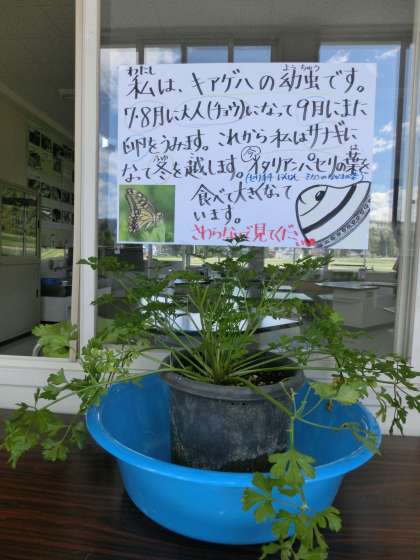 わたし
私は、キアゲハの幼虫です。
ようちゅう
7・8月に大人(チョウ)になって9月にまた
卵をうみます。これから私はサナギに
なって冬を越します。今イタリアンパセリの葉を
食べて大きくなって
います。
さわらないで見てください